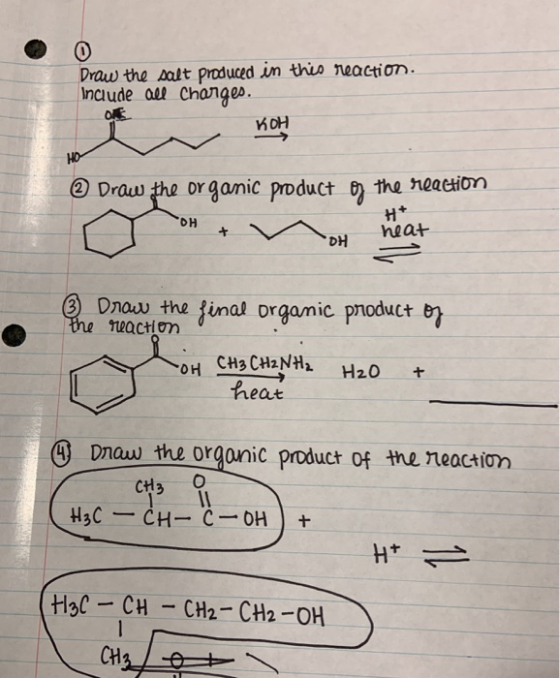 ①
Draw the salt produced in this reaction.
Include all charges.
HO
KOH
② Draw the organic product of the reaction
O
OH
+
OH
H+
heat
③ Draw the final organic product of
the reaction
O
OH
CH3CH2NH2
heat
H2O +
④ Draw the organic product of the reaction
CH3 O
H3C — CH — C — OH +
H+
H3C — CH — CH2 — CH2 — OH
CH3